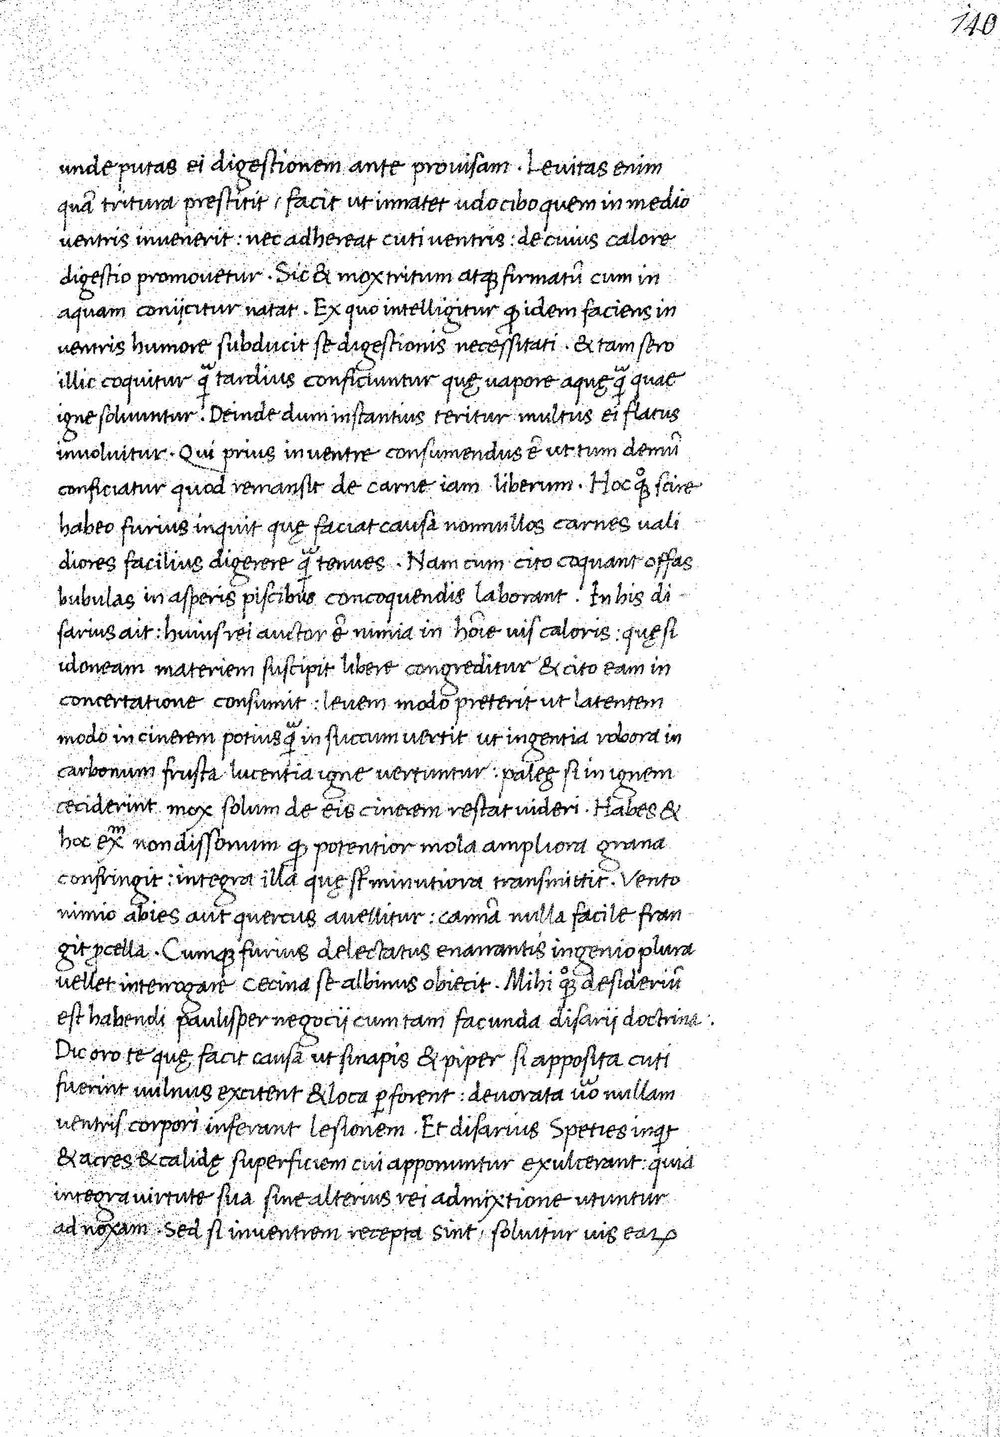 140
unde putas ei digestionem ante prouisam . Leuitas enim
quā tritura prestitit , facit ut innatet udo cibo quem in medio
uentris inuenerit : nec adhereat cuti uentris : de cuius calore
digestio promouetur . Sic & mox tritum atqꝫ firmatū cum in
aquam coniicitur natat . Ex quo intelligitur ꝙ idem faciens in
uentris humore subducit se digestionis necessitati . & tam sero
illic coquitur q̃ tardius conficiuntur quę uapore aquę q̃ quae
igne soluuntur . Deinde dum instantius teritur multus ei flatus
inuoluitur . Qui prius in uentre consumendus ē ut tum demū
conficiatur quod remansit de carne iam liberum . Hoc qͦꝫ scire
habeo furius inquit quę faciat causa nonnullos carnes uali
diores facilius digerere q̃ tenues . Nam cum cito coquant offas
bubulas in asperis piscibus concoquendis laborant . In his di -
sarius ait : huius rei auctor ē nimia in hoīe uis caloris : quę si
idoneam materiem suscipit libere congreditur & cito eam in
concertatione consumit : leuem modo preterit ut latentem
modo in cinerem potius q̃ in succum uertit ut ingentia robora in
carbonum frusta lucentia igne uertuntur : paleę si in ignem
ceciderint mox solum de eis cinerem restat uideri . Habes &
hoc exᵐ non dissonum ꝙ potentior mola ampliora grana
confringit : integra illa quę sт̄ minutiora transmittit . Vento
nimio abies aut quercus auellitur : cannā nulla facile fran
git ꝓcella . Cumqꝫ furius delectatus enarrantis ingenio plura
uellet interrogare cecina se albinus obiecit . Mihi qͦꝫ desideriū
est habendi paulisper negocii cum tam facunda disarii doctrina .
Dic oro te quę facit causā ut sinapis & piper si apposita cuti
fuerint uulnus excitent & loca ꝑforent : deuorata ũo nullam
uentris corpori inferant lesionem . Et disarius Species inqͥt
& acres & calidę superficiem cui apponuntur exulcerant : quia
integra uirtute sua sine alterius rei admixtione utuntur
ad noxam . Sed si in uentrem recepta sint , soluitur uis eaꝝ